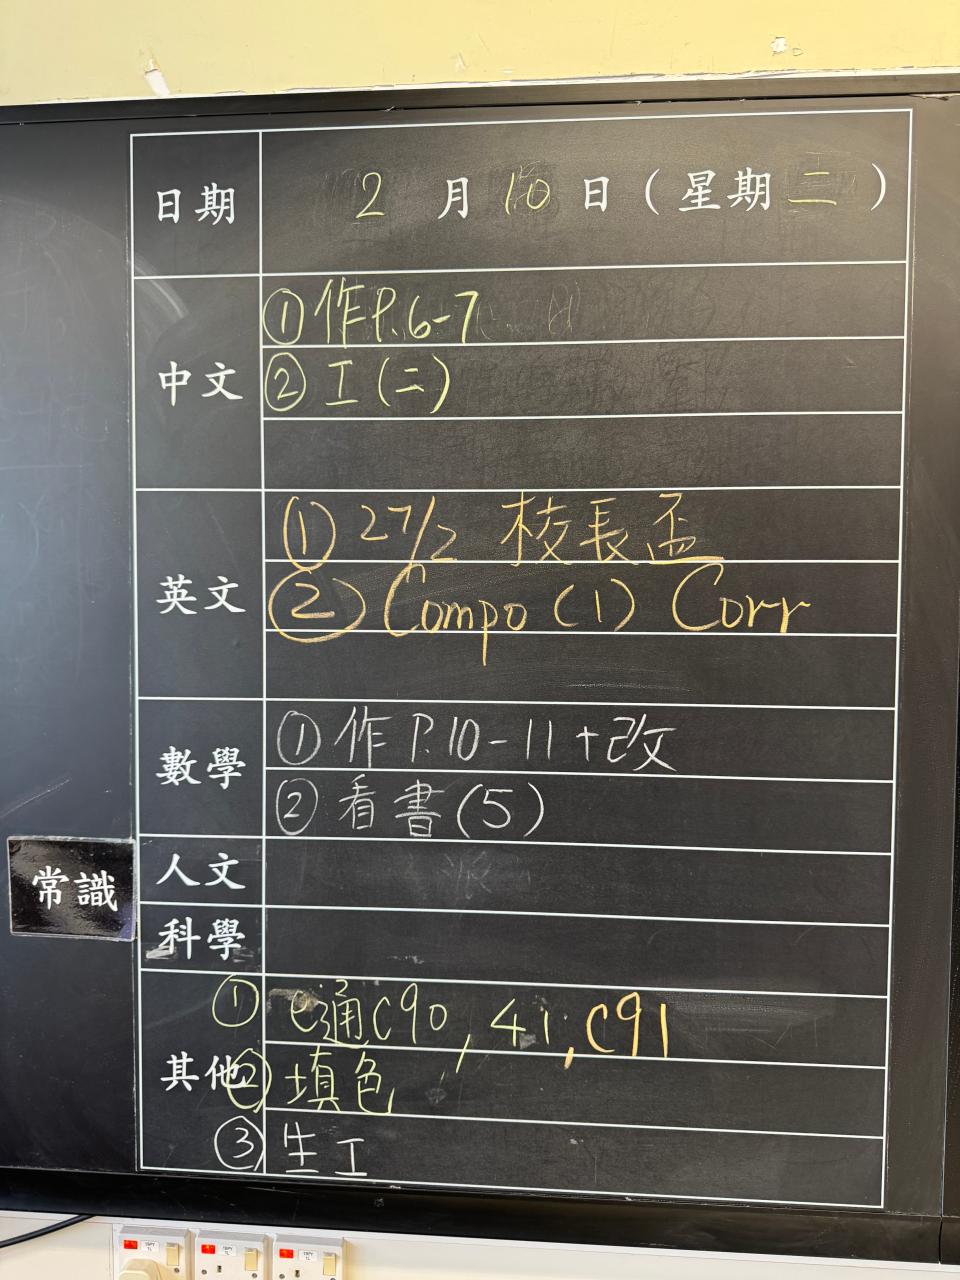 日期 2月10日(星期二)
中文
①作P.6-7
②工(二)
英文
① 27/2 校長盃
② Compo (1) Corr
數學
①作 P.10-11+改
②看書(5)
人文
常識
科學
其他
① e通C90, 41, C91
②填色
③生工